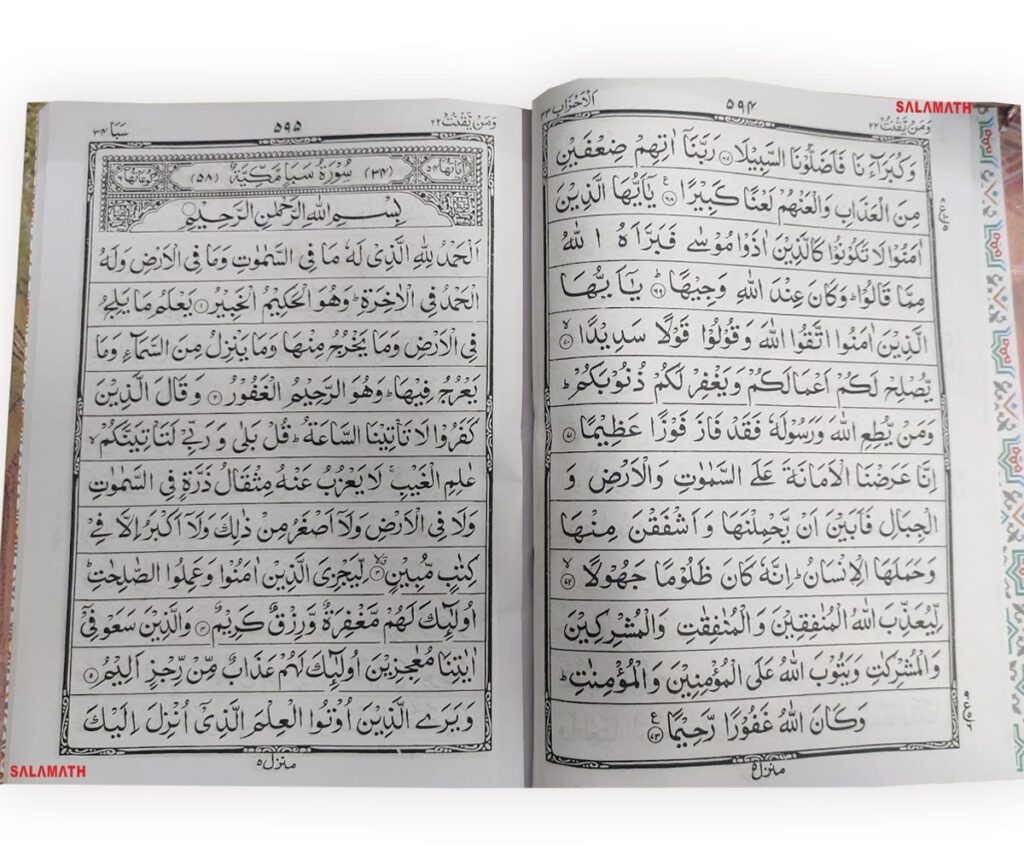 وَمَنْ يَّقْنُتْ ٢٢ ٥٩٤ اَلْاَحْزَاب ٣٣
SALAMATH
وَكُبَرَآءَنَا فَاَضَلُّوْنَا السَّبِيْلَا ۝٦٧ رَبَّنَآ اٰتِهِمْ ضِعْفَيْنِ
مِنَ الْعَذَابِ وَالْعَنْهُمْ لَعْنًا كَبِيْرًا ۝٦٨ يٰٓاَيُّهَا الَّذِيْنَ
اٰمَنُوْا لَا تَكُوْنُوْا كَالَّذِيْنَ اٰذَوْا مُوْسٰى فَبَرَّاَهُ اللّٰهُ
مِمَّا قَالُوْا ؕ وَكَانَ عِنْدَ اللّٰهِ وَجِيْهًا ؕ ۝٦٩ يٰٓاَيُّهَا
الَّذِيْنَ اٰمَنُوا اتَّقُوا اللّٰهَ وَقُوْلُوْا قَوْلًا سَدِيْدًا ۙ ۝٧٠
يُّصْلِحْ لَكُمْ اَعْمَالَكُمْ وَيَغْفِرْ لَكُمْ ذُنُوْبَكُمْ ؕ
وَمَنْ يُّطِعِ اللّٰهَ وَرَسُوْلَهٗ فَقَدْ فَازَ فَوْزًا عَظِيْمًا ۝٧١
اِنَّا عَرَضْنَا الْاَمَانَةَ عَلَى السَّمٰوٰتِ وَالْاَرْضِ وَ
الْجِبَالِ فَاَبَيْنَ اَنْ يَّحْمِلْنَهَا وَاَشْفَقْنَ مِنْهَا
وَحَمَلَهَا الْاِنْسَانُ ؕ اِنَّهٗ كَانَ ظَلُوْمًا جَهُوْلًا ۙ ۝٧٢
لِّيُعَذِّبَ اللّٰهُ الْمُنٰفِقِيْنَ وَالْمُنٰفِقٰتِ وَالْمُشْرِكِيْنَ
وَالْمُشْرِكٰتِ وَيَتُوْبَ اللّٰهُ عَلَى الْمُؤْمِنِيْنَ وَالْمُؤْمِنٰتِ ؕ
وَكَانَ اللّٰهُ غَفُوْرًا رَّحِيْمًا ۝٧٣
منزل ٥
وَمَنْ يَّقْنُتْ ٢٢ ٥٩٥ سَبَا ٣٤
اٰيَاتُهَا ٥٤ (٣٤) سُوْرَةُ سَبَاٍ مَّكِّيَّةٌ (٥٨) رُكُوْعَاتُهَا ٦
بِسْمِ اللّٰهِ الرَّحْمٰنِ الرَّحِيْمِ
اَلْحَمْدُ لِلّٰهِ الَّذِيْ لَهٗ مَا فِي السَّمٰوٰتِ وَمَا فِي الْاَرْضِ وَلَهُ
الْحَمْدُ فِي الْاٰخِرَةِ ؕ وَهُوَ الْحَكِيْمُ الْخَبِيْرُ ۝١ يَعْلَمُ مَا يَلِجُ
فِي الْاَرْضِ وَمَا يَخْرُجُ مِنْهَا وَمَا يَنْزِلُ مِنَ السَّمَآءِ وَمَا
يَعْرُجُ فِيْهَا ؕ وَهُوَ الرَّحِيْمُ الْغَفُوْرُ ۝٢ وَقَالَ الَّذِيْنَ
كَفَرُوْا لَا تَاْتِيْنَا السَّاعَةُ ؕ قُلْ بَلٰى وَرَبِّيْ لَتَاْتِيَنَّكُمْ ۙ
عٰلِمِ الْغَيْبِ ۚ لَا يَعْزُبُ عَنْهُ مِثْقَالُ ذَرَّةٍ فِي السَّمٰوٰتِ
وَلَا فِي الْاَرْضِ وَلَآ اَصْغَرُ مِنْ ذٰلِكَ وَلَآ اَكْبَرُ اِلَّا فِيْ
كِتٰبٍ مُّبِيْنٍ ۙ ۝٣ لِّيَجْزِيَ الَّذِيْنَ اٰمَنُوْا وَعَمِلُوا الصّٰلِحٰتِ ؕ
اُولٰٓئِكَ لَهُمْ مَّغْفِرَةٌ وَّرِزْقٌ كَرِيْمٌ ۝٤ وَالَّذِيْنَ سَعَوْ فِيْٓ
اٰيٰتِنَا مُعٰجِزِيْنَ اُولٰٓئِكَ لَهُمْ عَذَابٌ مِّنْ رِّجْزٍ اَلِيْمٌ ۝٥
وَيَرَى الَّذِيْنَ اُوْتُوا الْعِلْمَ الَّذِيْٓ اُنْزِلَ اِلَيْكَ
منزل ٥
SALAMATH